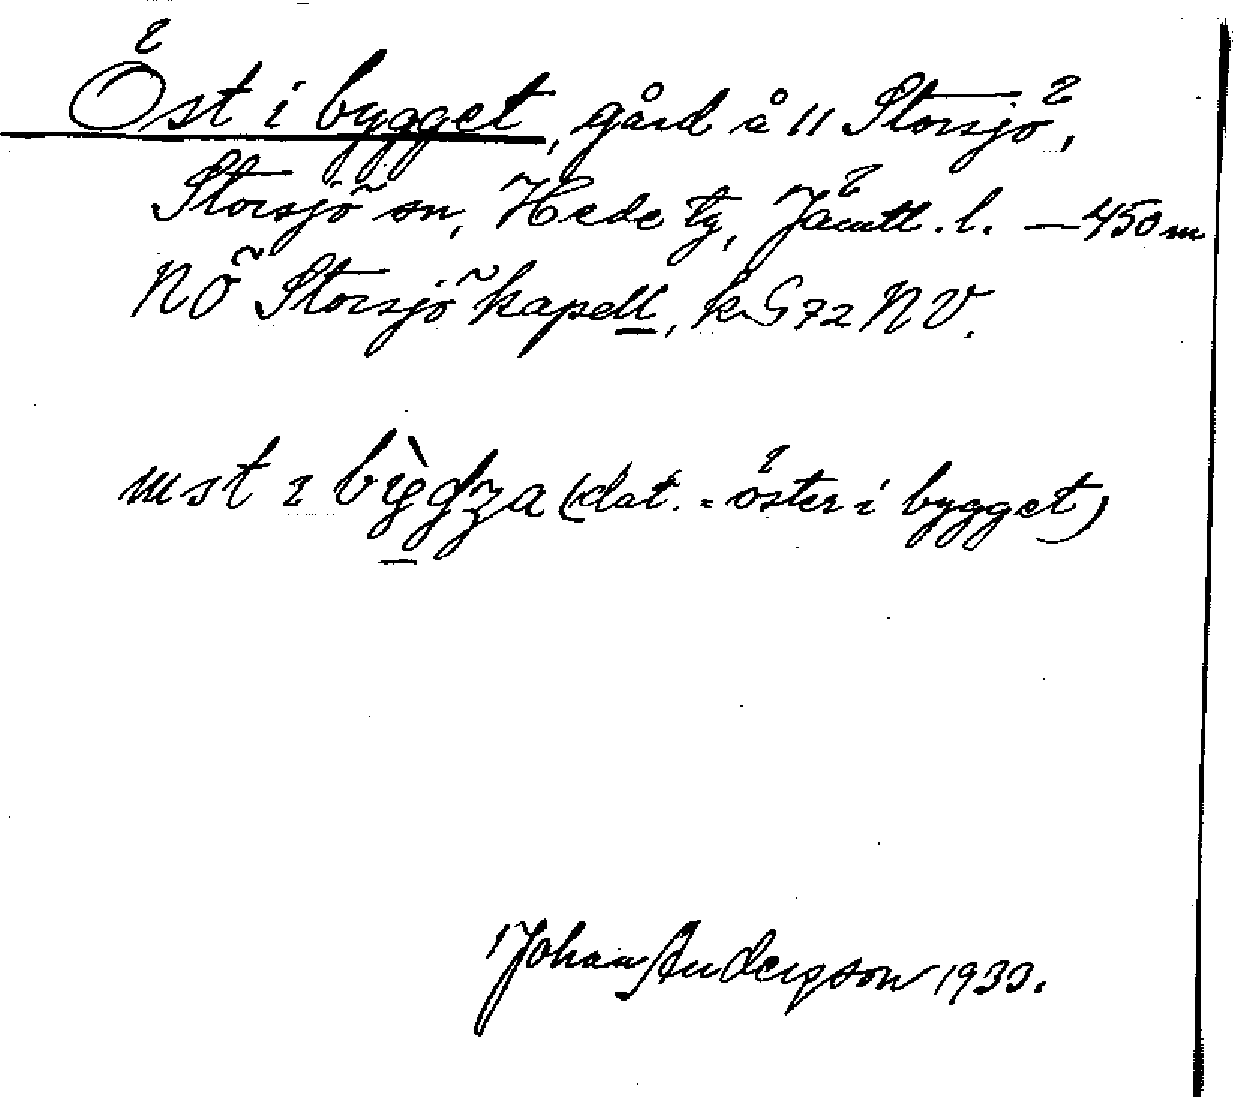 Öst i bygget, gård å 11 Storsjö,
Storsjö sn, Hede tg, Jämtl. l. — 450 m
NÖ Storsjö kapell, k. G 72 NV.
i (dat. = öster i bygget)
Johan Anderson 1930.